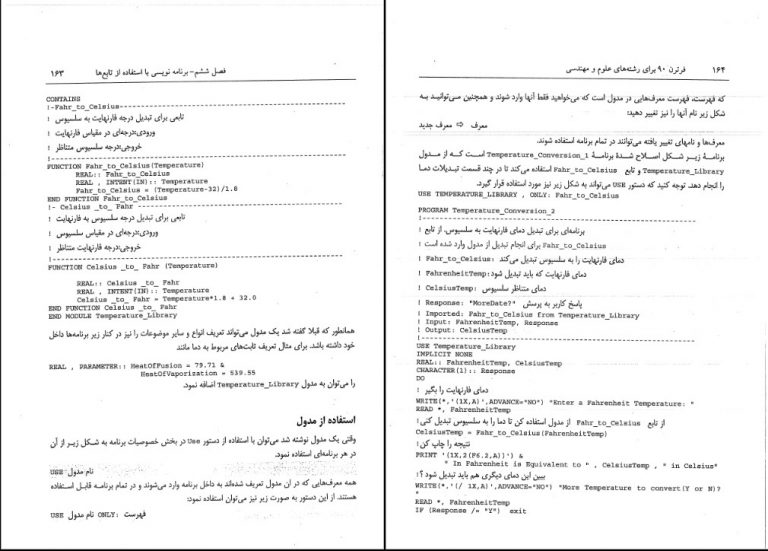 فصل ششم- برنامه نویسی با استفاده از تابع‌ها ۱۶۳
CONTAINS
!-Fahr_to_Celsius----------------------------------------
تابعی برای تبدیل درجه فارنهایت به سلسیوس !
ورودی:درجه‌ای در مقیاس فارنهایت !
خروجی:درجه سلسیوس متناظر !
!--------------------------------------------------------
FUNCTION Fahr_to_Celsius(Temperature)
REAL:: Fahr_to_Celsius
REAL , INTENT(IN):: Temperature
Fahr_to_Celsius = (Temperature-32)/1.8
END FUNCTION Fahr_to_Celsius
!- Celsius _to_ Fahr ------------------------------------
تابعی برای تبدیل درجه سلسیوس به فارنهایت !
ورودی:درجه‌ای در مقیاس سلسیوس !
خروجی:درجه فارنهایت متناظر !
!--------------------------------------------------------
FUNCTION Celsius _to_ Fahr (Temperature)
REAL:: Celsius _to_ Fahr
REAL , INTENT(IN):: Temperature
Celsius _to_ Fahr = Temperature*1.8 + 32.0
END FUNCTION Celsius _to_ Fahr
END MODULE Temperature_Library
همانطور که قبلا گفته شد یک مدول می‌تواند تعریف انواع و سایر موضوعات را نیز در کنار زیر برنامه‌ها داخل
خود داشته باشد. برای مثال تعریف ثابت‌های مربوط به دما مانند
REAL , PARAMETER:: HeatOfFusion = 79.71 &
HeatOfVaporization = 539.55
را می‌توان به مدول Temperature_Library اضافه نمود.
استفاده از مدول
وقتی یک مدول نوشته شد می‌توان با استفاده از دستور Use در بخش خصوصیات برنامه به شکل زیر از آن
در هر برنامه‌ای استفاده نمود.
USE نام مدول
همه معرف‌هایی که در آن مدول تعریف شده‌اند به داخل برنامه وارد می‌شوند و در تمام برنامه قابل استفاده
هستند. از این دستور به صورت زیر نیز می‌توان استفاده نمود:
USE نام مدول ONLY: فهرست
۱۶۴ فرترن ۹۰ برای رشته‌های علوم و مهندسی
که فهرست، فهرست معرف‌هایی در مدول است که می‌خواهید فقط آنها وارد شوند و همچنین می‌توانید به
شکل زیر نام آنها را نیز تغییر دهید:
معرف ⇨ معرف جدید
معرف‌ها و نامهای تغییر یافته می‌توانند در تمام برنامه استفاده شوند.
برنامهٔ زیر شکل اصلاح شدهٔ برنامهٔ Temperature_Conversion_1 است که از مدول
Temperature_Library و تابع Fahr_to_Celsius استفاده می‌کند تا در چند قسمت تبدیلات دما
را انجام دهد. توجه کنید که دستور USE می‌تواند به شکل زیر نیز مورد استفاده قرار گیرد.
USE TEMPERATURE_LIBRARY , ONLY: Fahr_to_Celsius
PROGRAM Temperature_Conversion_2
!--------------------------------------------------------
برنامه‌ای برای تبدیل دمای فارنهایت به سلسیوس، از تابع !
Fahr_to_Celsius برای انجام تبدیل از مدول وارد شده است !
دمای فارنهایت را به سلسیوس تبدیل می‌کند :Fahr_to_Celsius !
دمای فارنهایت که باید تبدیل شود:FahrenheitTemp !
دمای متناظر سلسیوس :CelsiusTemp !
! Response: "MoreDate?" پاسخ کاربر به پرسش
! Imported: Fahr_to_Celsius from Temperature_Library
! Input: FahrenheitTemp, Response
! Output: CelsiusTemp
!--------------------------------------------------------
USE Temperature_Library
IMPLICIT NONE
REAL:: FahrenheitTemp, CelsiusTemp
CHARACTER(1):: Response
DO
دمای فارنهایت را بگیر !
WRITE(*,'(1X,A)',ADVANCE="NO") "Enter a Fahrenheit Temperature: "
READ *, FahrenheitTemp
از تابع Fahr_to_Celsius از مدول استفاده کن تا دما را به سلسیوس تبدیل کنی!
CelsiusTemp = Fahr_to_Celsius(FahrenheitTemp)
نتیجه را چاپ کن!
PRINT '(1X,2(F6.2,A))') &
" In Fahrenheit is Equivalent to " , CelsiusTemp , " in Celsius"
ببین این دمای دیگری هم باید تبدیل شود؟!
WRITE(*,'(/ 1X,A)',ADVANCE="NO") "More Temperature to convert(Y or N)?
"
READ *, FahrenheitTemp
IF (Response /= "Y") exit